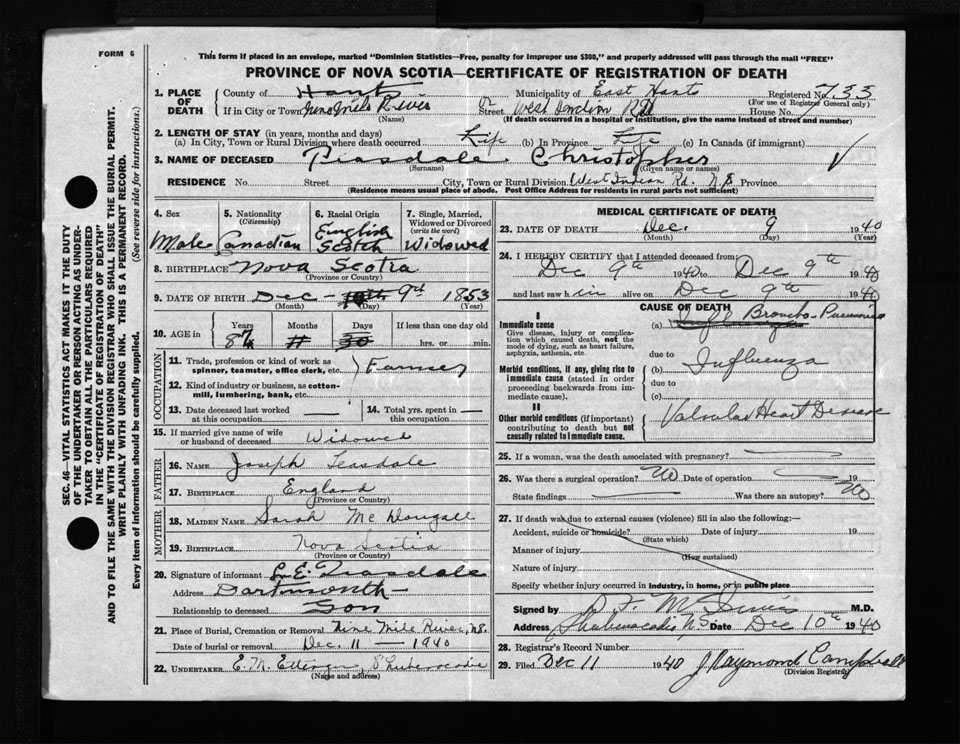 FORM 6
This form if placed in an envelope, marked "Dominion Statistics—Free, penalty for improper use $300," and properly addressed will pass through the mail "FREE"
PROVINCE OF NOVA SCOTIA—CERTIFICATE OF REGISTRATION OF DEATH
SEC. 46—VITAL STATISTICS ACT MAKES IT THE DUTY
OF THE UNDERTAKER OR PERSON ACTING AS UNDER-
TAKER TO OBTAIN ALL THE PARTICULARS REQUIRED
IN THE "CERTIFICATE OF REGISTRATION OF DEATH"
AND TO FILE THE SAME WITH THE DIVISION REGISTRAR WHO SHALL ISSUE THE BURIAL PERMIT.
WRITE PLAINLY WITH UNFADING INK. THIS IS A PERMANENT RECORD.
Every item of information should be carefully supplied. (See reverse side for instructions.)
1. PLACE OF DEATH County of Hants Municipality of East Hants Registered No. 733
(For use of Registrar General only)
If in City or Town Nine Mile River or Street West Indian Rd House No.
(Name) (If death occurred in a hospital or institution, give the name instead of street and number)
2. LENGTH OF STAY (in years, months and days)
(a) In City, Town or Rural Division where death occurred Life (b) In Province Life (c) In Canada (if immigrant)
3. NAME OF DECEASED Teasdale Christopher
(Surname) (Given name or names)
RESIDENCE No. Street City, Town or Rural Division West Indian Rd. N.S Province
(Residence means usual place of abode. Post Office Address for residents in rural parts not sufficient)
4. Sex 5. Nationality (Citizenship) 6. Racial Origin 7. Single, Married, Widowed or Divorced (write the word)
Male Canadian English Scotch Widowed
8. BIRTHPLACE Nova Scotia
(Province or Country)
9. DATE OF BIRTH Dec - 9th 1853
(Month) (Day) (Year)
10. AGE in Years Months Days If less than one day old
87 hrs. or min.
OCCUPATION
11. Trade, profession or kind of work as spinner, teamster, office clerk, etc. Farmer
12. Kind of industry or business, as cotton-mill, lumbering, bank, etc.
13. Date deceased last worked at this occupation 14. Total yrs. spent in this occupation
15. If married give name of wife or husband of deceased Widowed
FATHER
16. NAME Joseph Teasdale
17. BIRTHPLACE England
(Province or Country)
MOTHER
18. MAIDEN NAME Sarah McDougall
19. BIRTHPLACE Nova Scotia
(Province or Country)
20. Signature of informant L. E. Teasdale
Address Dartmouth
Relationship to deceased Son
21. Place of Burial, Cremation or Removal Nine Mile River, N.S.
Date of burial or removal Dec. 11 — 1940
22. UNDERTAKER E. M. Ettinger Shubenacadie
(Name and address)
MEDICAL CERTIFICATE OF DEATH
23. DATE OF DEATH Dec. 9 1940
(Month) (Day) (Year)
24. I HEREBY CERTIFY that I attended deceased from:
Dec 9th 1940 to Dec 9th 1940
and last saw him alive on Dec 9th 1940
CAUSE OF DEATH
I
Immediate cause (a) Broncho-Pneumonia
Give disease, injury or complication which caused death, not the mode of dying, such as heart failure, asphyxia, asthenia, etc.
due to
Morbid conditions, if any, giving rise to immediate cause (stated in order proceeding backwards from immediate cause). (b) Influenza
due to
(c)
II
Other morbid conditions (if important) contributing to death but not causally related to immediate cause. Valvular Heart Disease
25. If a woman, was the death associated with pregnancy?
26. Was there a surgical operation? No Date of operation 19
State findings Was there an autopsy? No
27. If death was due to external causes (violence) fill in also the following:—
Accident, suicide or homicide? Date of injury 19
(State which)
Manner of injury
(How sustained)
Nature of injury
Specify whether injury occurred in industry, in home, or in public place
Signed by D. F. McInnis M.D.
Address Shubenacadie N.S. Date Dec 10th 1940
28. Registrar's Record Number
29. Filed Dec 11 1940 J Raymond Campbell
(Division Registrar)